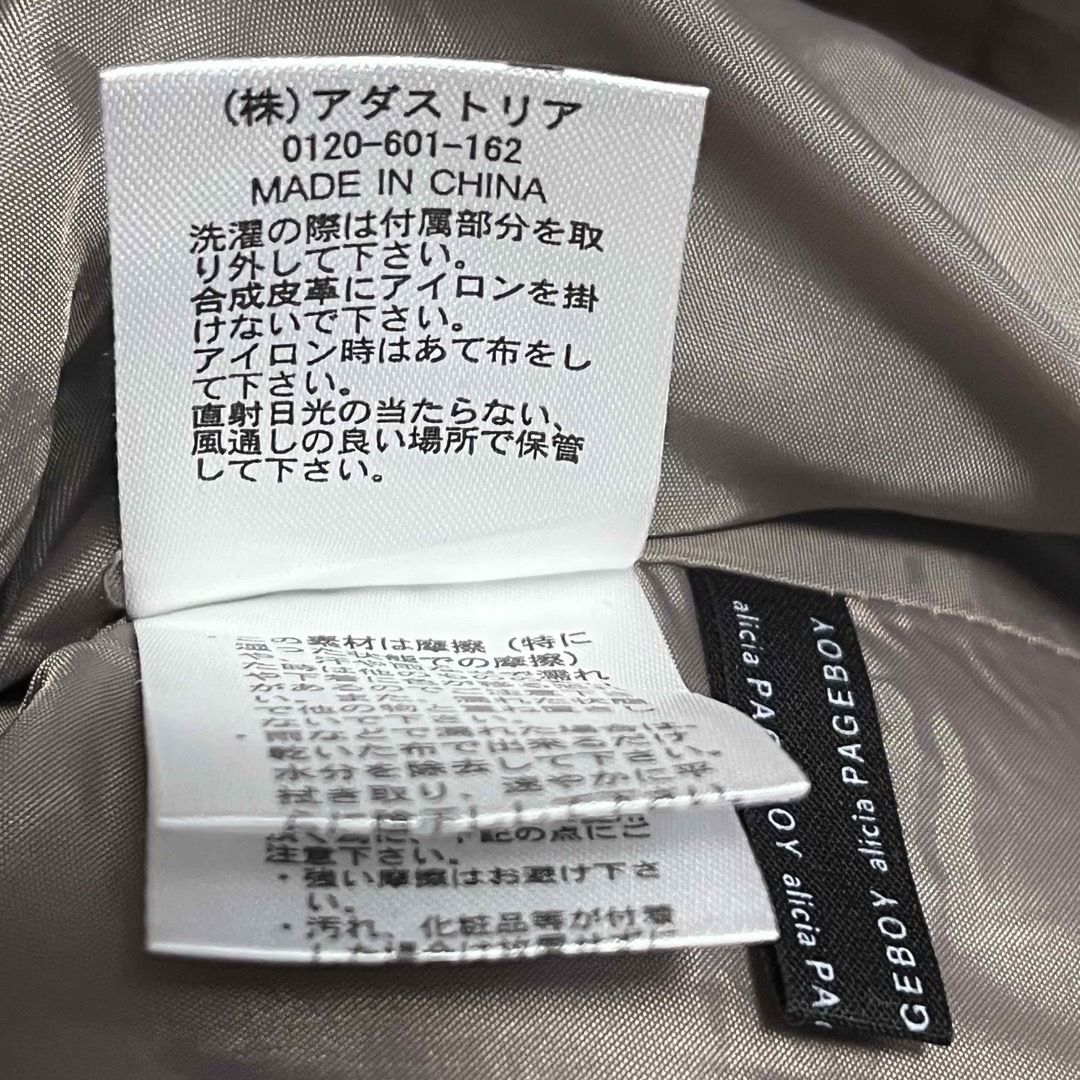 (株)アダストリア
0120-601-162
MADE IN CHINA
洗濯の際は付属部分を取
り外して下さい。
合成皮革にアイロンを掛
けないで下さい。
アイロン時はあて布をし
て下さい。
直射日光の当たらない、
風通しの良い場所で保管
して下さい。
・この素材は摩擦(特に
での摩擦)
雨などで濡れた場合は、
乾いた布で出来るだけ
水分を除去して下さい。
拭き取り、速やかに平
下記の点にご
注意下さい。
・強い摩擦はお避け下さ
い。
・汚れ、化粧品等が付着
した場合は
alicia PAG
OY alicia PA
GEBOY alicia PAGEBOY